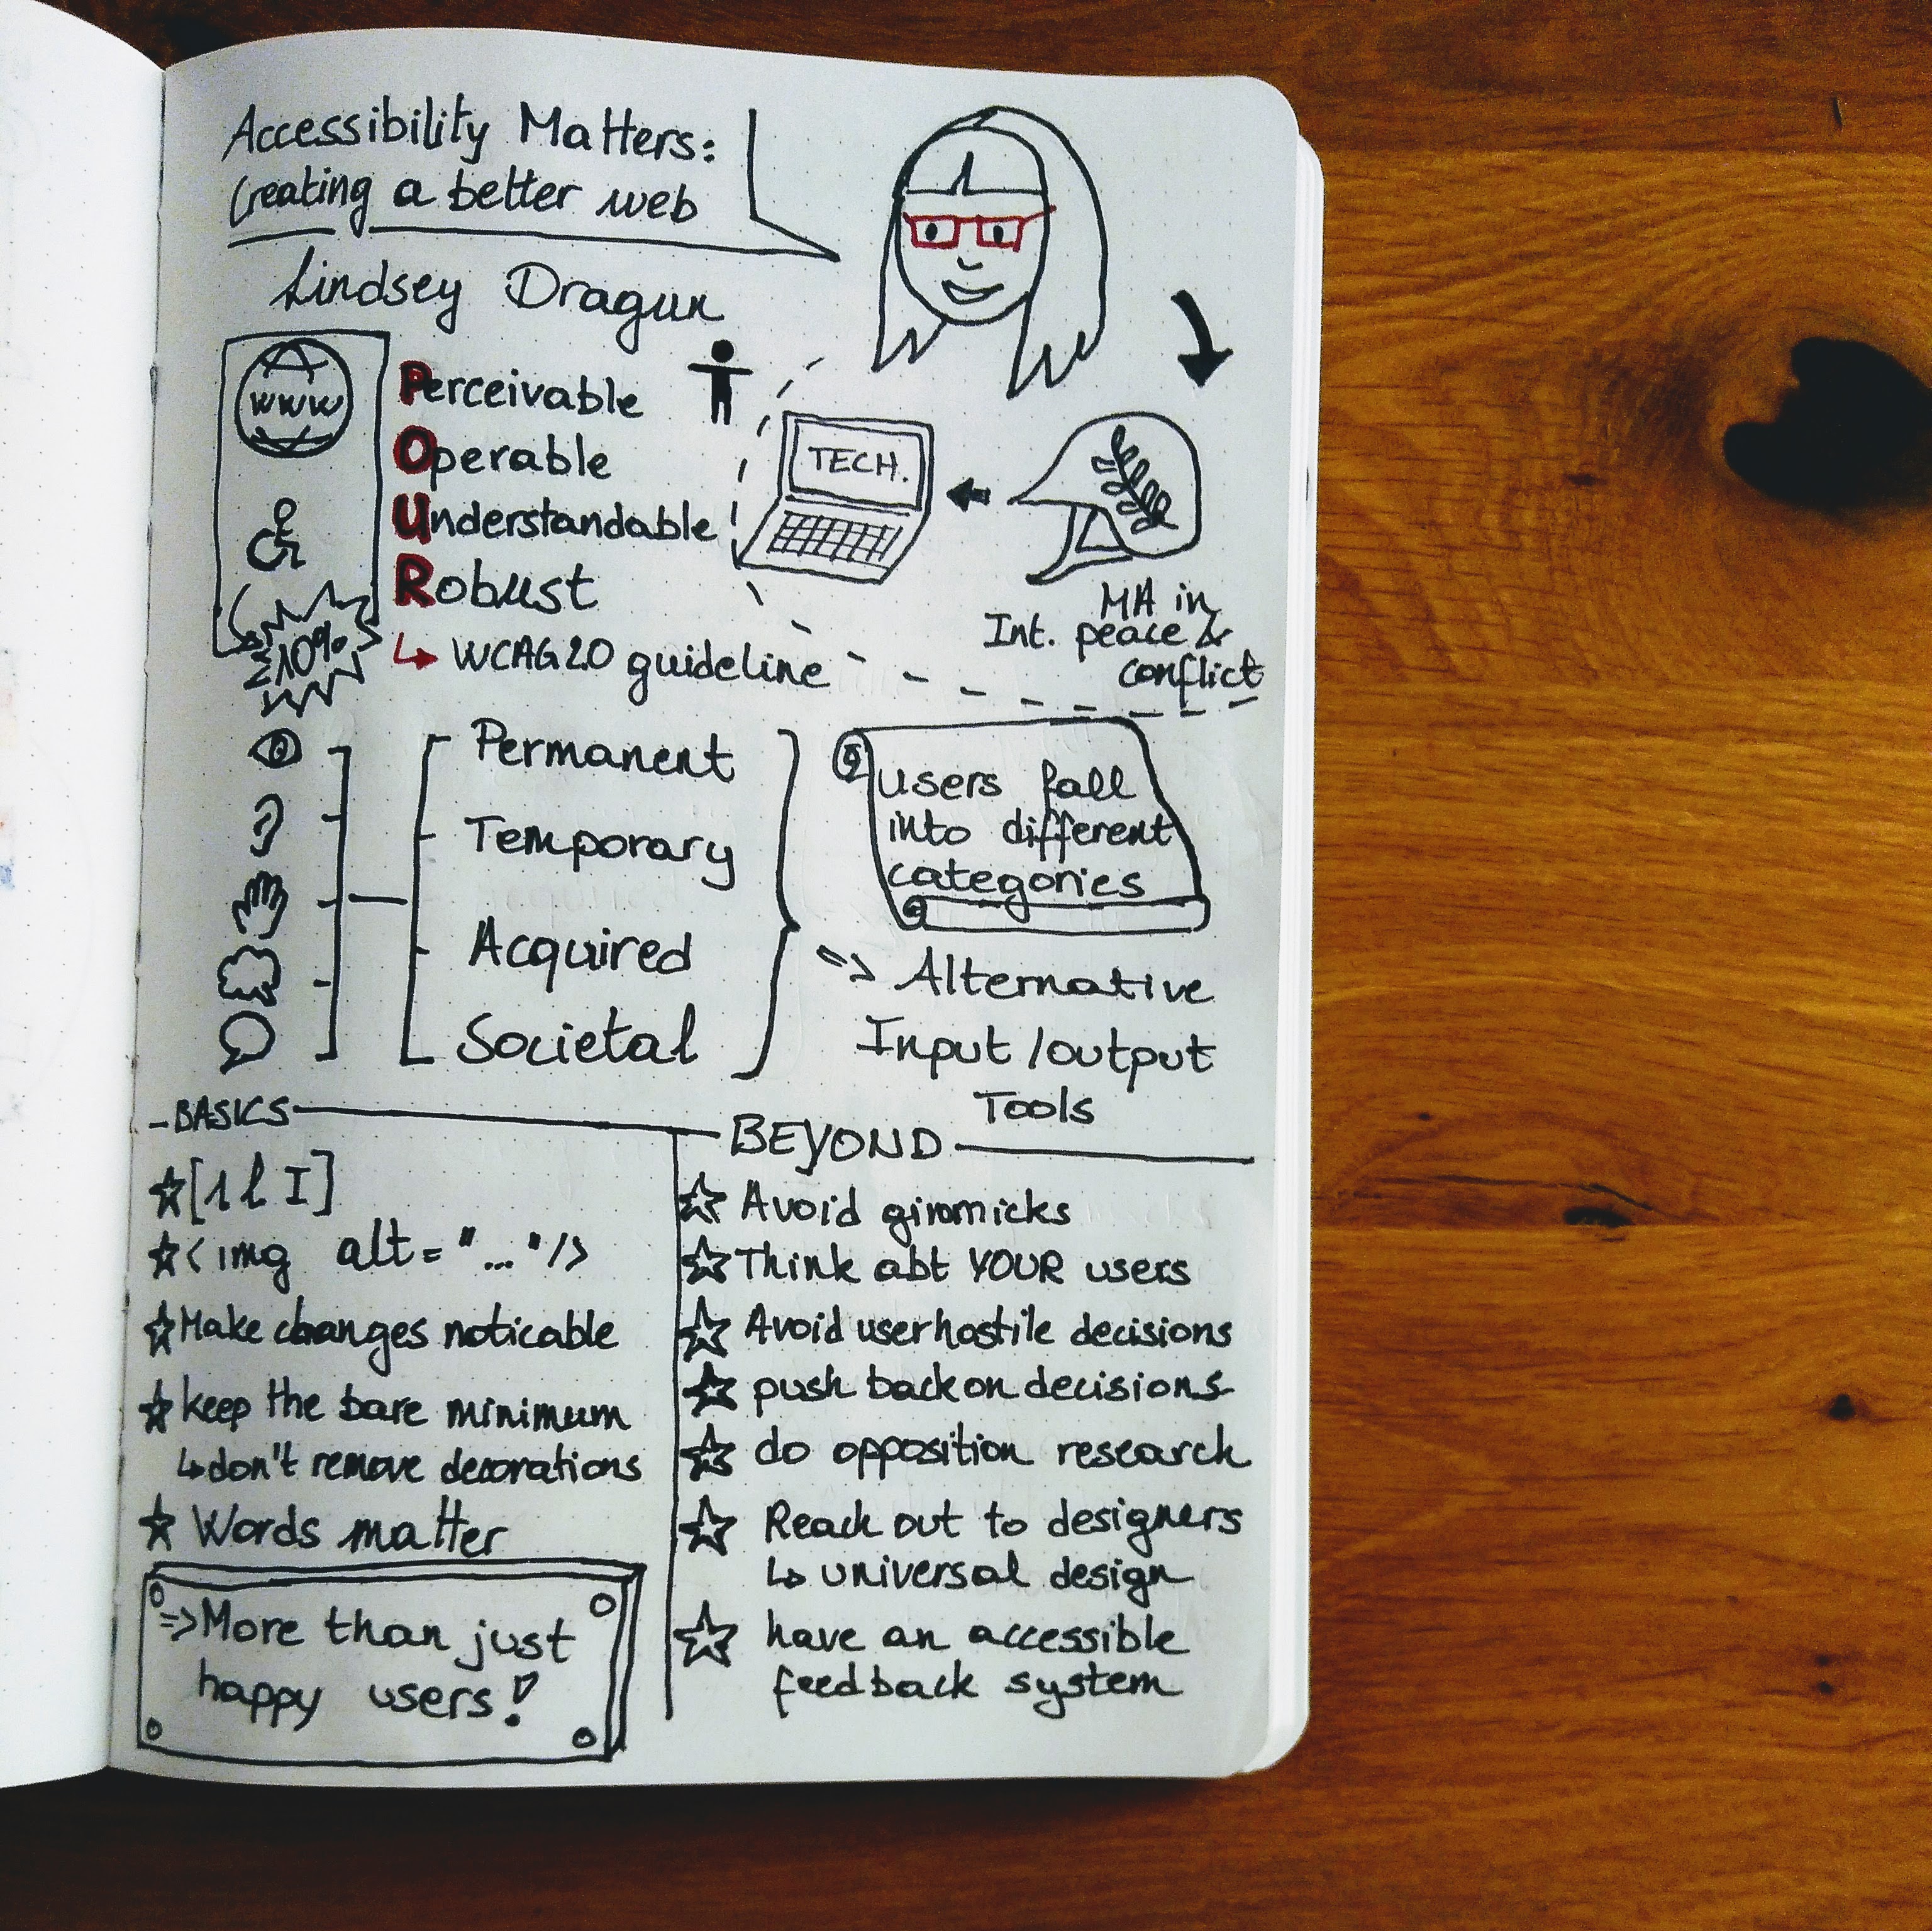 Accessibility Matters:
Creating a better web
Lindsey Dragun
www
10%
Perceivable
Operable
Understandable
Robust
↳ WCAG 2.0 guideline
TECH.
MA in
Int. peace &
conflict
Permanent
Temporary
Acquired
Societal
users fall
into different
categories
=> Alternative
Input/output
Tools
BASICS
[1 l I]
<img alt="..."/>
Make changes noticable
keep the bare minimum
↳ don't remove decorations
Words matter
=> More than just
happy users!
BEYOND
Avoid gimmicks
Think abt YOUR users
Avoid userhostile decisions
push back on decisions
do opposition research
Reach out to designers
↳ universal design
have an accessible
feedback system